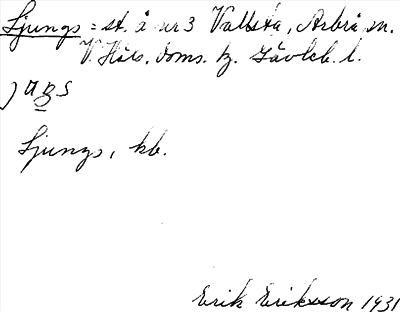 Ljungs = st. å nr 3 Vallsta, Arbrå sn.
V. Häls. doms. hz. Gävleb. l.
Ljungs, kb.
Erik Eriksson 1931